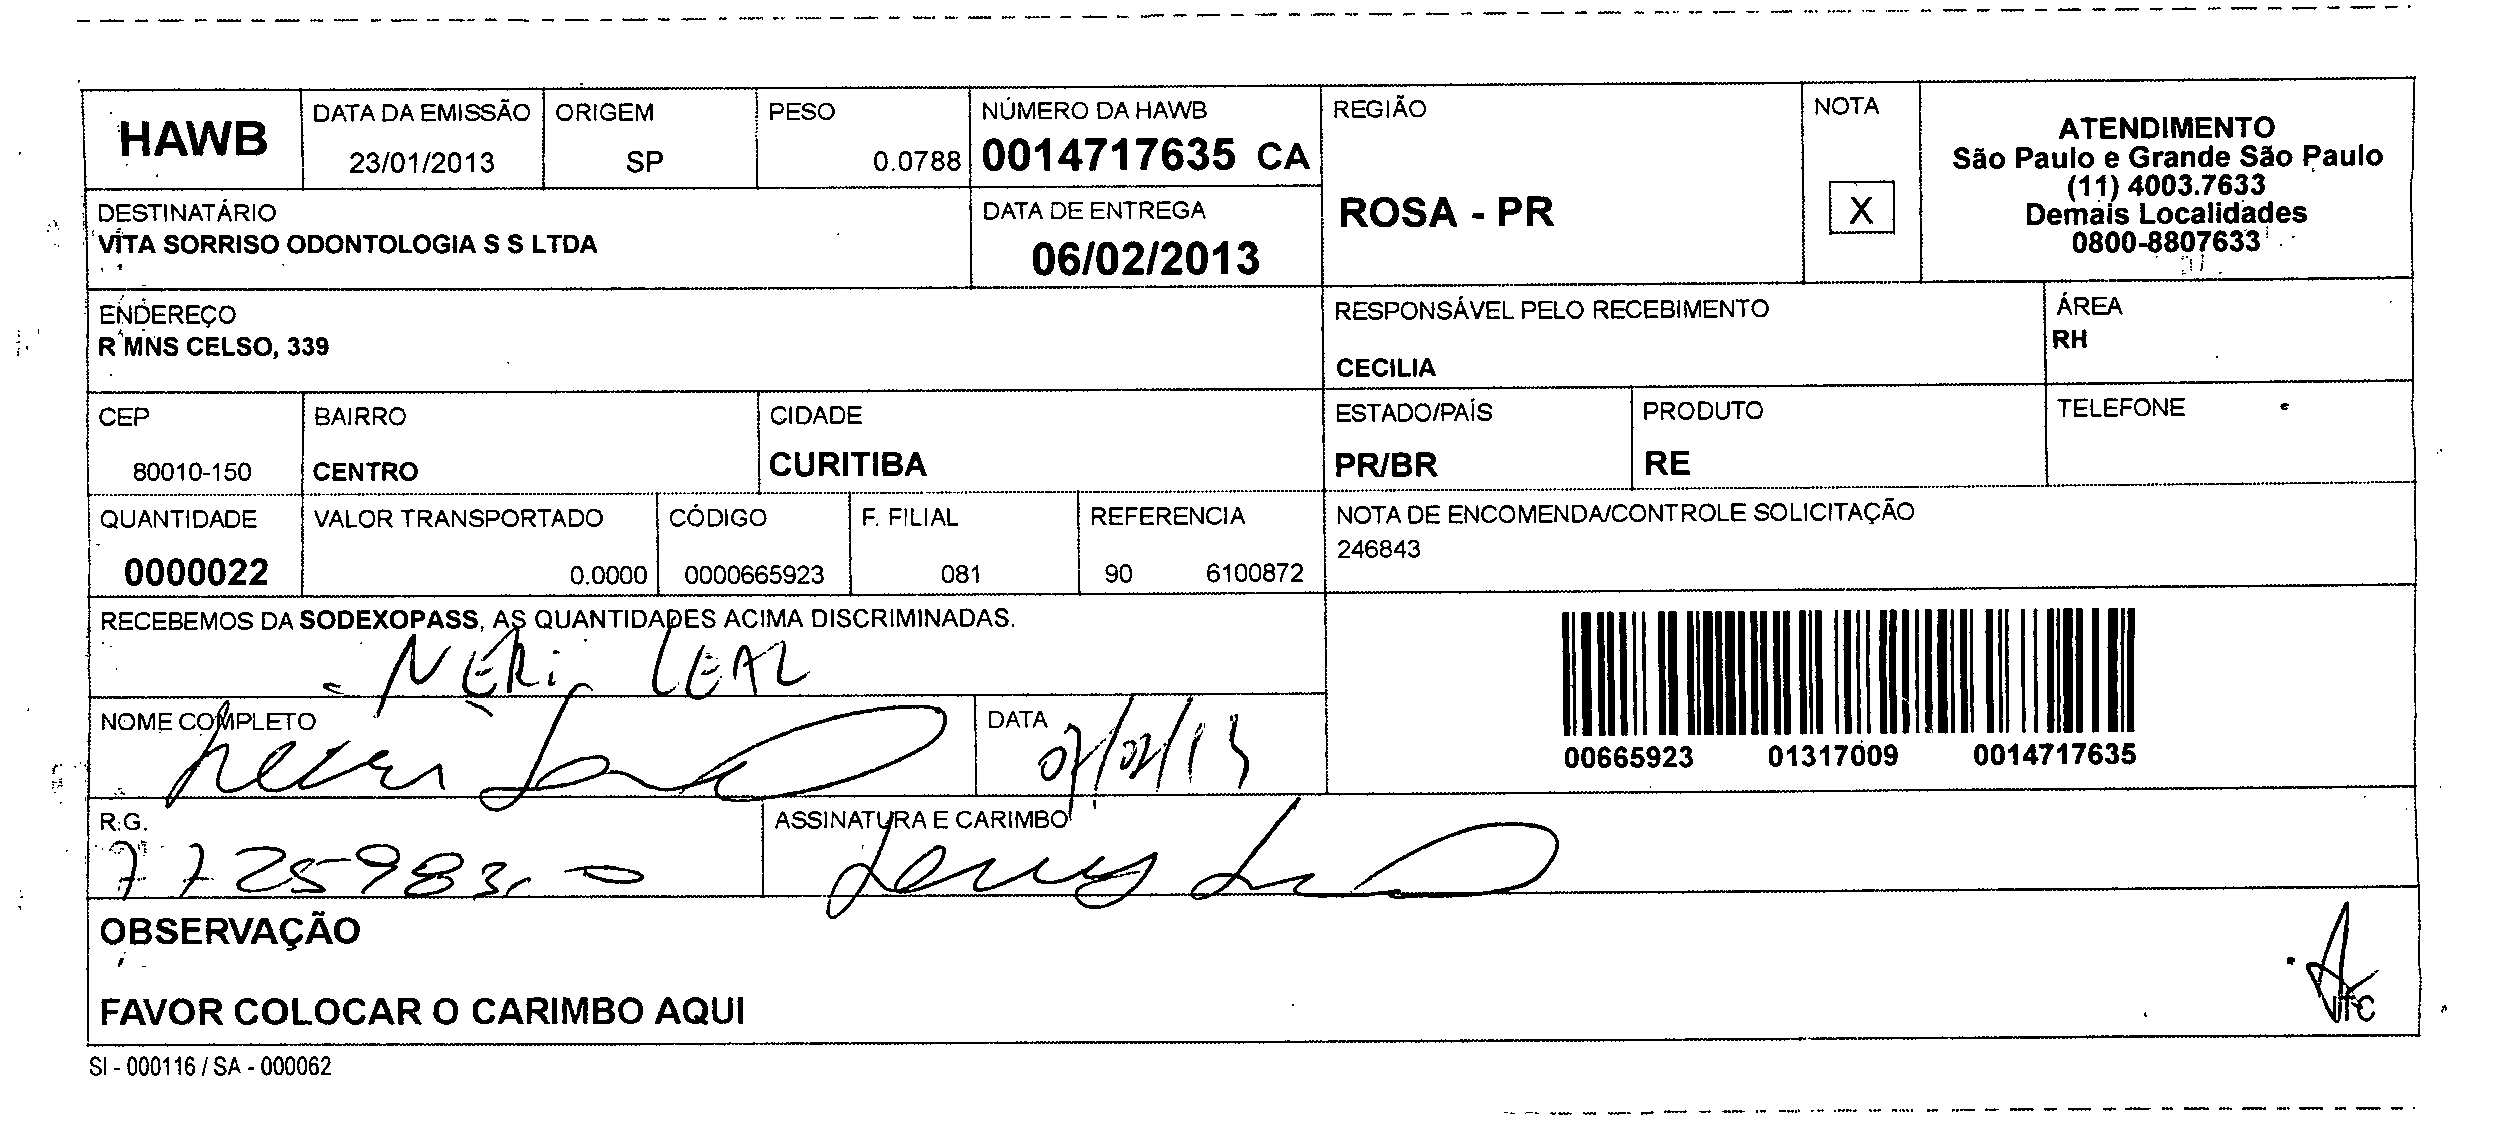 HAWB
DATA DA EMISSÃO
23/01/2013
ORIGEM
SP
PESO
0.0788
NÚMERO DA HAWB
0014717635 CA
REGIÃO
ROSA - PR
NOTA
X
ATENDIMENTO
São Paulo e Grande São Paulo
(11) 4003.7633
Demais Localidades
0800-8807633
DESTINATÁRIO
VITA SORRISO ODONTOLOGIA S S LTDA
DATA DE ENTREGA
06/02/2013
ENDEREÇO
R MNS CELSO, 339
RESPONSÁVEL PELO RECEBIMENTO
CECILIA
ÁREA
RH
CEP
80010-150
BAIRRO
CENTRO
CIDADE
CURITIBA
ESTADO/PAÍS
PR/BR
PRODUTO
RE
TELEFONE
QUANTIDADE
0000022
VALOR TRANSPORTADO
0.0000
CÓDIGO
0000665923
F. FILIAL
081
REFERENCIA
90 6100872
NOTA DE ENCOMENDA/CONTROLE SOLICITAÇÃO
246843
RECEBEMOS DA SODEXOPASS, AS QUANTIDADES ACIMA DISCRIMINADAS.
NERI LEAL
NOME COMPLETO
DATA
07/02/13
00665923 01317009 0014717635
R.G.
7725983-0
ASSINATURA E CARIMBO
OBSERVAÇÃO
FAVOR COLOCAR O CARIMBO AQUI
SI - 000116 / SA - 000062